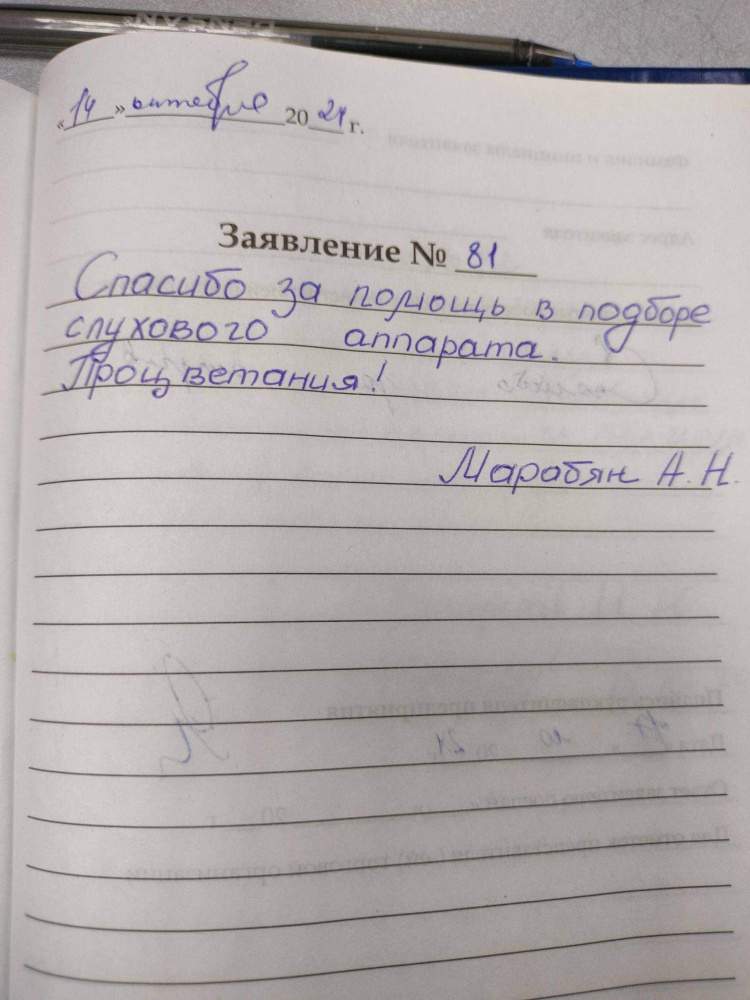 DENSAN
«14» октября 2021 г.
Заявление № 81
Спасибо за помощь в подборе
слухового аппарата.
Процветания!
Марабян А.Н.